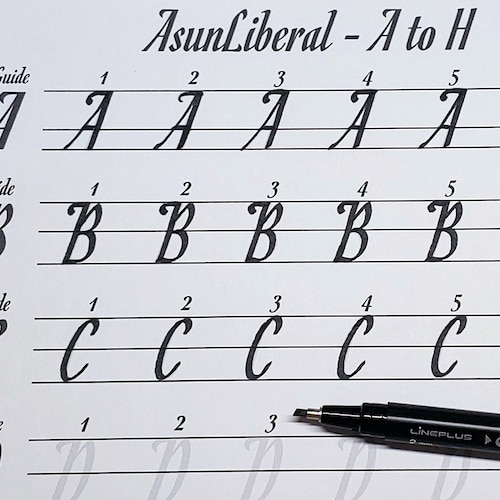 AsunLiberal - A to H
Guide 1 2 3 4 5
A A A A A A
1 2 3 4 5
B B B B B B
1 2 3 4 5
C C C C C
1 2 3
LINEPLUS
D D D D D